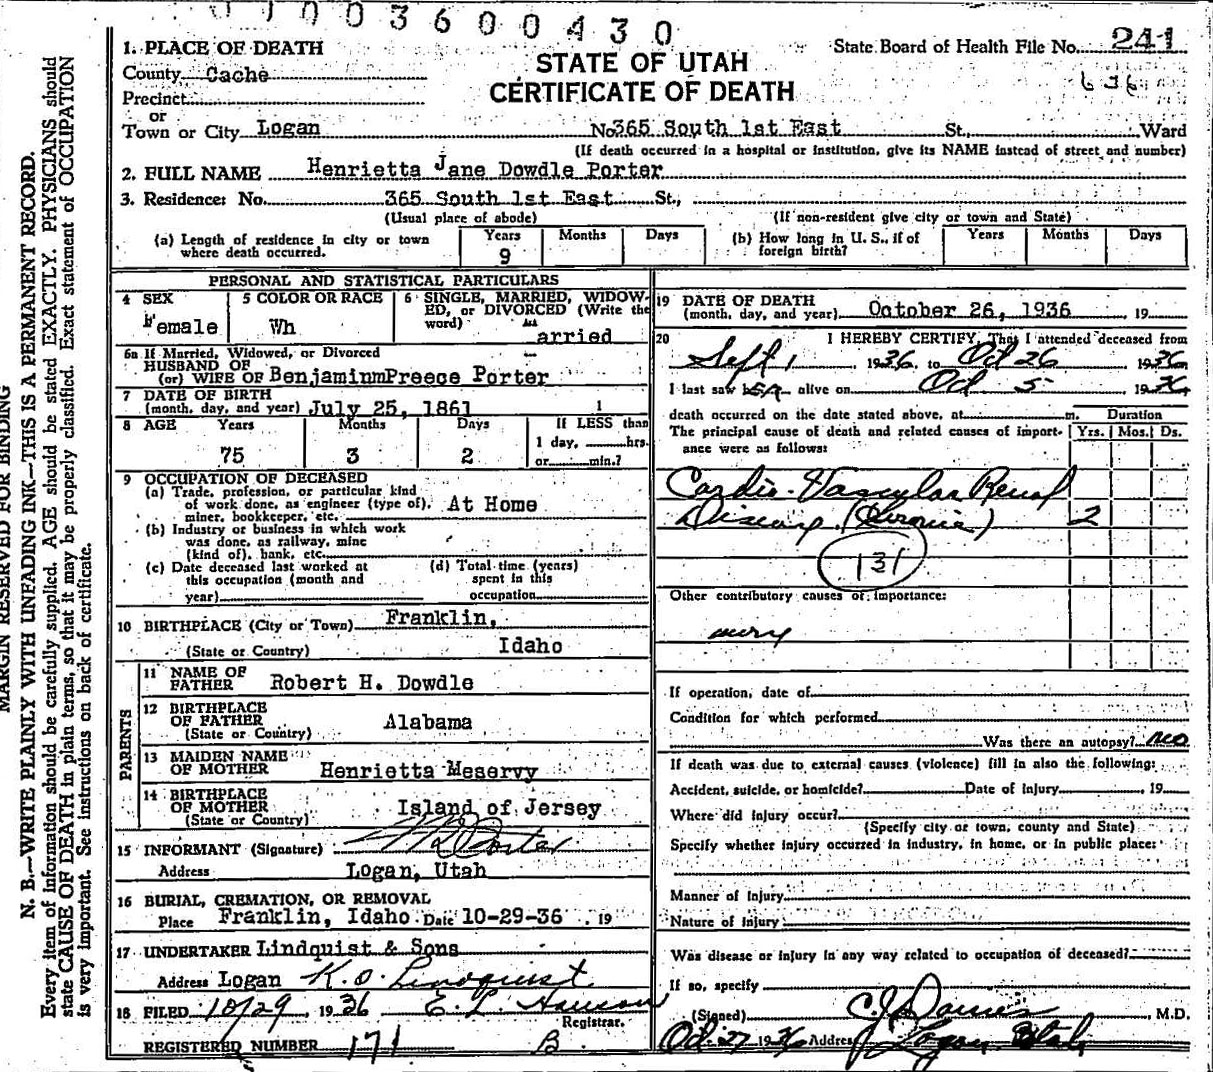 003600430
1. PLACE OF DEATH
State Board of Health File No. 241
County Cache
STATE OF UTAH
636
Precinct
CERTIFICATE OF DEATH
or
Town or City Logan No 365 South 1st East St., Ward
(If death occurred in a hospital or institution, give its NAME instead of street and number)
2. FULL NAME Henrietta Jane Dowdle Porter
3. Residence: No. 365 South 1st East St.,
(Usual place of abode) (If non-resident give city or town and State)
(a) Length of residence in city or town where death occurred. Years 9 Months Days
(b) How long in U. S., if of foreign birth? Years Months Days
PERSONAL AND STATISTICAL PARTICULARS
4 SEX Female
5 COLOR OR RACE Wh
6 SINGLE, MARRIED, WIDOW-
ED, or DIVORCED (Write the
word) arried
6a If Married, Widowed, or Divorced
HUSBAND OF
(or) WIFE OF BenjaminmPreece Porter
7 DATE OF BIRTH
(month, day, and year) July 25, 1861 1
8 AGE Years Months Days If LESS than
75 3 2 1 day, hrs.
or min.?
9 OCCUPATION OF DECEASED
(a) Trade, profession, or particular kind
of work done, as engineer (type of), At Home
miner, bookkeeper, etc.
(b) Industry or business in which work
was done, as railway, mine
(kind of), bank, etc.
(c) Date deceased last worked at
this occupation (month and
year)
(d) Total time (years)
spent in this
occupation
10 BIRTHPLACE (City or Town) Franklin,
(State or Country) Idaho
PARENTS
11 NAME OF
FATHER Robert H. Dowdle
12 BIRTHPLACE
OF FATHER Alabama
(State or Country)
13 MAIDEN NAME
OF MOTHER Henrietta Meservy
14 BIRTHPLACE
OF MOTHER Island of Jersey
(State or Country)
15 INFORMANT (Signature) Porter
Address Logan, Utah
16 BURIAL, CREMATION, OR REMOVAL
Place Franklin, Idaho Date 10-29-36 19
17 UNDERTAKER Lindquist & Sons
Address Logan K.O. Lindquist
18 FILED 10/29, 1936 E. L. Hanson
Registrar.
REGISTERED NUMBER 171 B
19 DATE OF DEATH
(month, day, and year) October 26, 1936 , 19
20 I HEREBY CERTIFY, That I attended deceased from
Sept 1 1936, to Oct 26 1936
I last saw her alive on Oct 5 1936
death occurred on the date stated above, at m. Duration
The principal cause of death and related causes of import- Yrs. Mos. Ds.
ance were as follows:
Cardio-Vascular Renal
Disease (Chronic) 2
131
Other contributory causes of importance:
If operation, date of
Condition for which performed
Was there an autopsy? no
If death was due to external causes (violence) fill in also the following:
Accident, suicide, or homicide? Date of injury , 19
Where did injury occur?
(Specify city or town, county and State)
Specify whether injury occurred in industry, in home, or in public place:
Manner of Injury
Nature of Injury
Was disease or injury in any way related to occupation of deceased?
If so, specify
(Signed) C. J. Daines , M.D.
Oct. 27 1936 Address Logan Utah
MARGIN RESERVED FOR BINDING
N. B.—WRITE PLAINLY WITH UNFADING INK—THIS IS A PERMANENT RECORD.
Every item of information should be carefully supplied. AGE should be stated EXACTLY. PHYSICIANS should
state CAUSE OF DEATH in plain terms, so that it may be properly classified. Exact statement of OCCUPATION
is very important. See instructions on back of certificate.